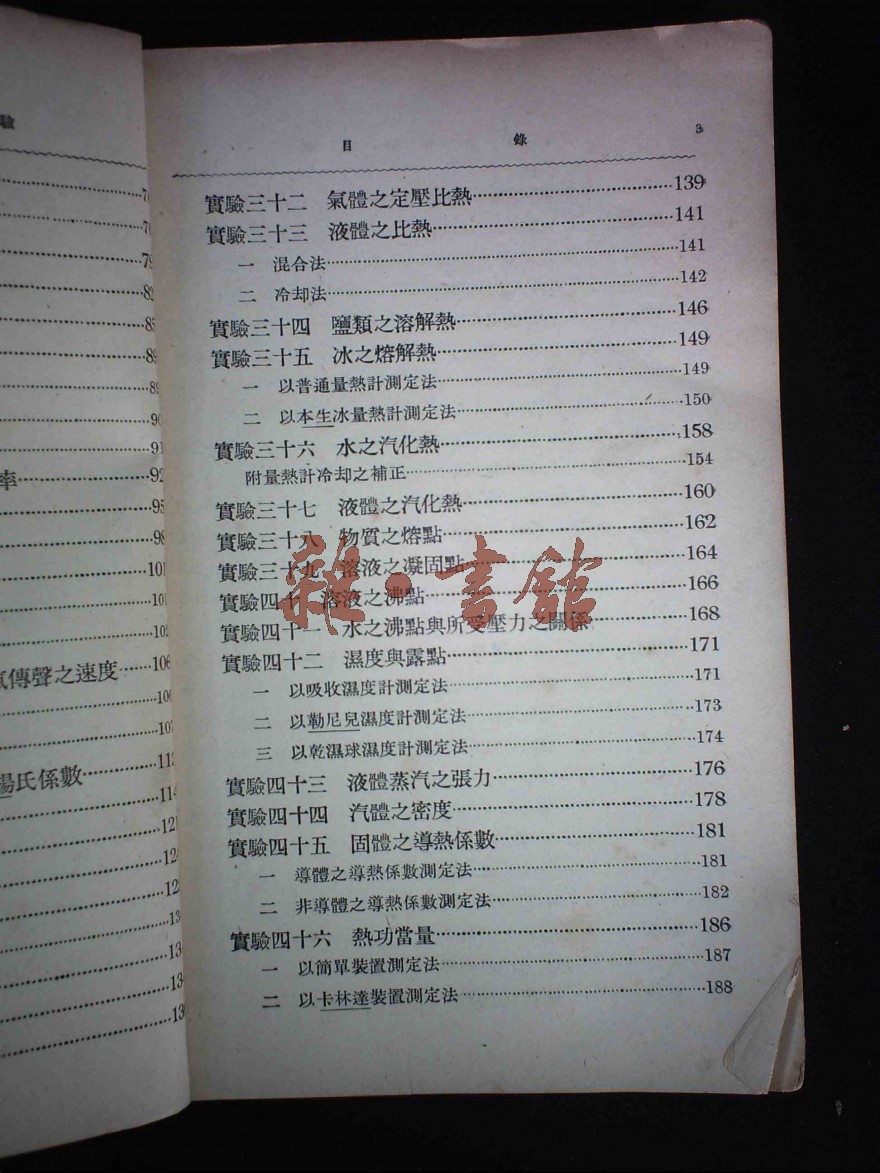 驗
76
79
82
85
89
90
91
率 92
95
98
101
101
102
氣傳聲之速度 106
106
107
113
楊氏係數
114
目 錄 3
實驗三十二 氣體之定壓比熱 139
實驗三十三 液體之比熱 141
一 混合法 141
二 冷却法 142
實驗三十四 鹽類之溶解熱 146
實驗三十五 冰之熔解熱 149
一 以普通量熱計測定法 149
二 以本生冰量熱計測定法 150
實驗三十六 水之汽化熱 158
附量熱計冷却之補正 154
實驗三十七 液體之汽化熱 160
實驗三十八 物質之熔點 162
實驗三十九 溶液之凝固點 164
實驗四十 溶液之沸點 166
實驗四十一 水之沸點與所受壓力之關係 168
實驗四十二 濕度與露點 171
一 以吸收濕度計測定法 171
二 以勒尼兒濕度計測定法 173
三 以乾濕球濕度計測定法 174
實驗四十三 液體蒸汽之張力 176
實驗四十四 汽體之密度 178
實驗四十五 固體之導熱係數 181
一 導體之導熱係數測定法 181
二 非導體之導熱係數測定法 182
實驗四十六 熱功當量 186
一 以簡單裝置測定法 187
二 以卡林達裝置測定法 188
雜·書館